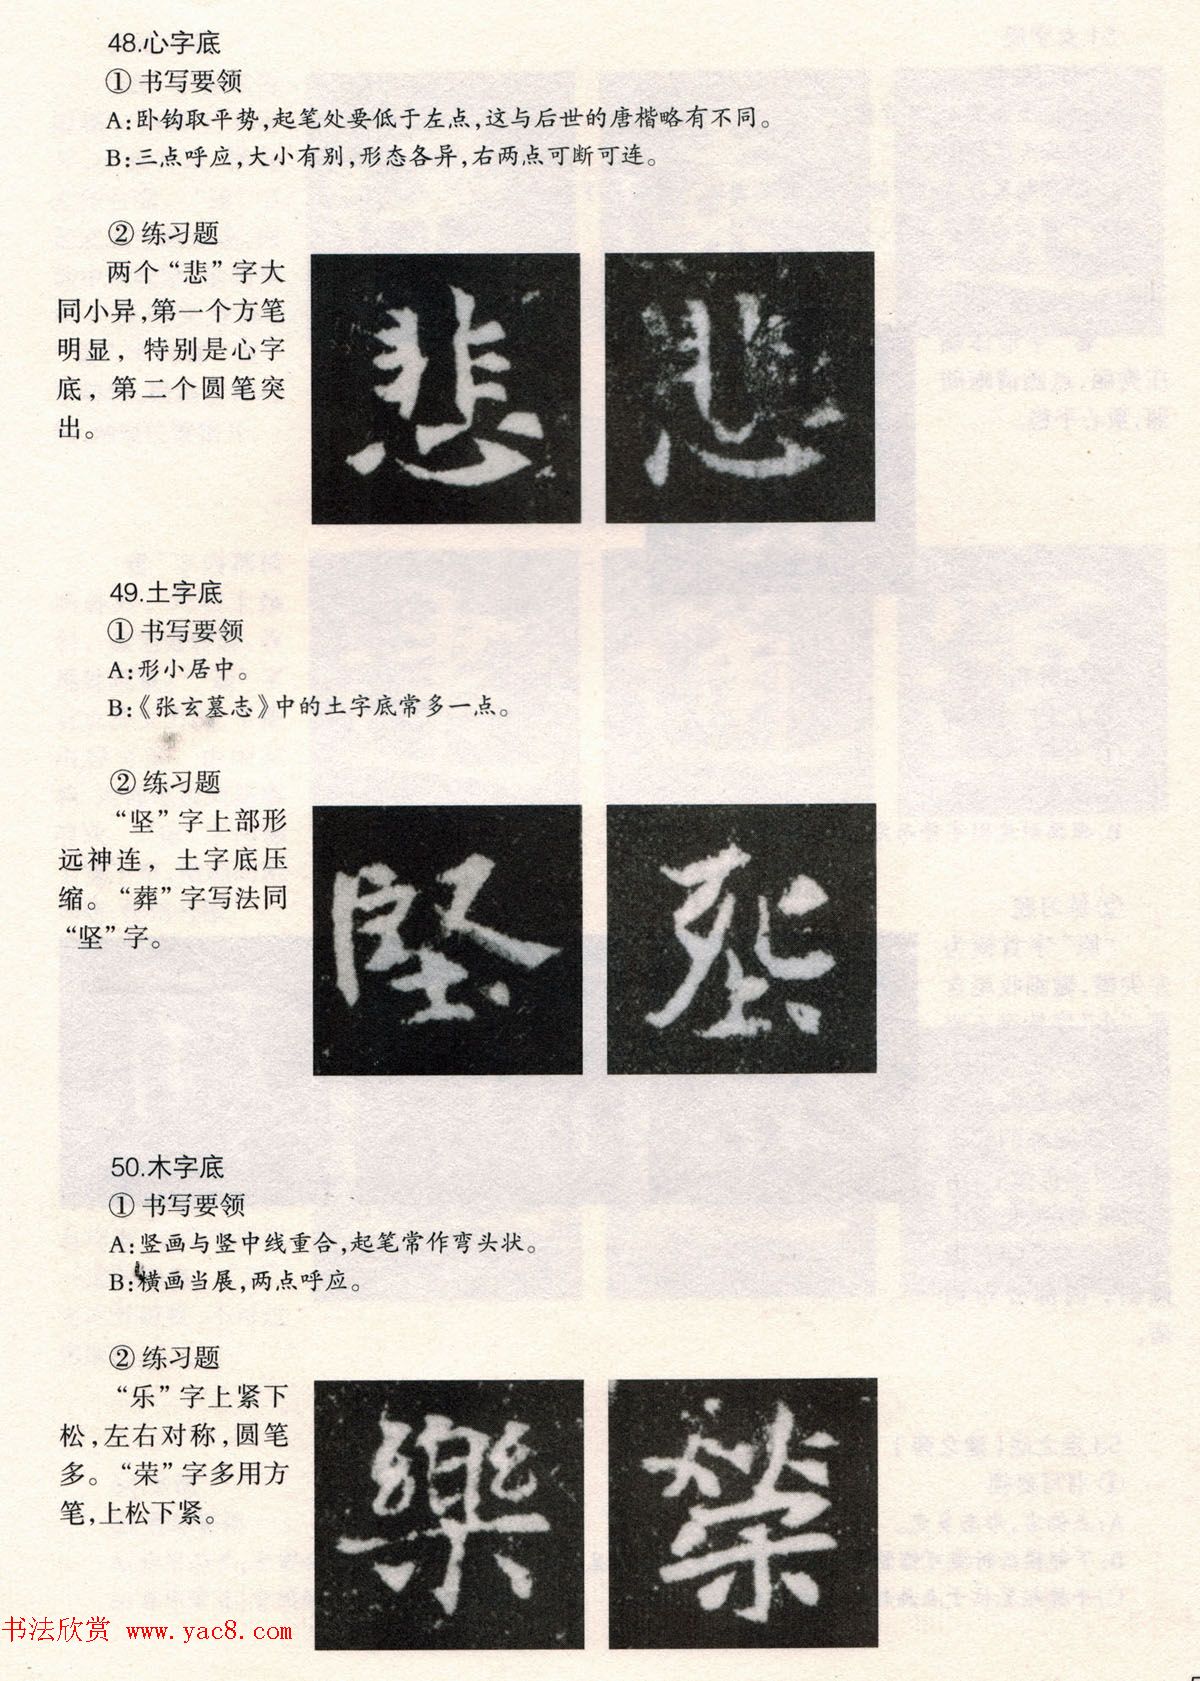 48.心字底
① 书写要领
A:卧钩取平势,起笔处要低于左点,这与后世的唐楷略有不同。
B:三点呼应,大小有别,形态各异,右两点可断可连。
② 练习题
两个“悲”字大
同小异,第一个方笔
明显，特别是心字
底，第二个圆笔突
出。
悲 悲
49.土字底
① 书写要领
A:形小居中。
B:《张玄墓志》中的土字底常多一点。
② 练习题
“坚”字上部形
远神连，土字底压
缩。“葬”字写法同
“坚”字。
堅
50.木字底
① 书写要领
A:竖画与竖中线重合,起笔常作弯头状。
B:横画当展,两点呼应。
② 练习题
“乐”字上紧下
松,左右对称,圆笔
多。“荣”字多用方
笔,上松下紧。
樂 榮
书法欣赏 www.yac8.com